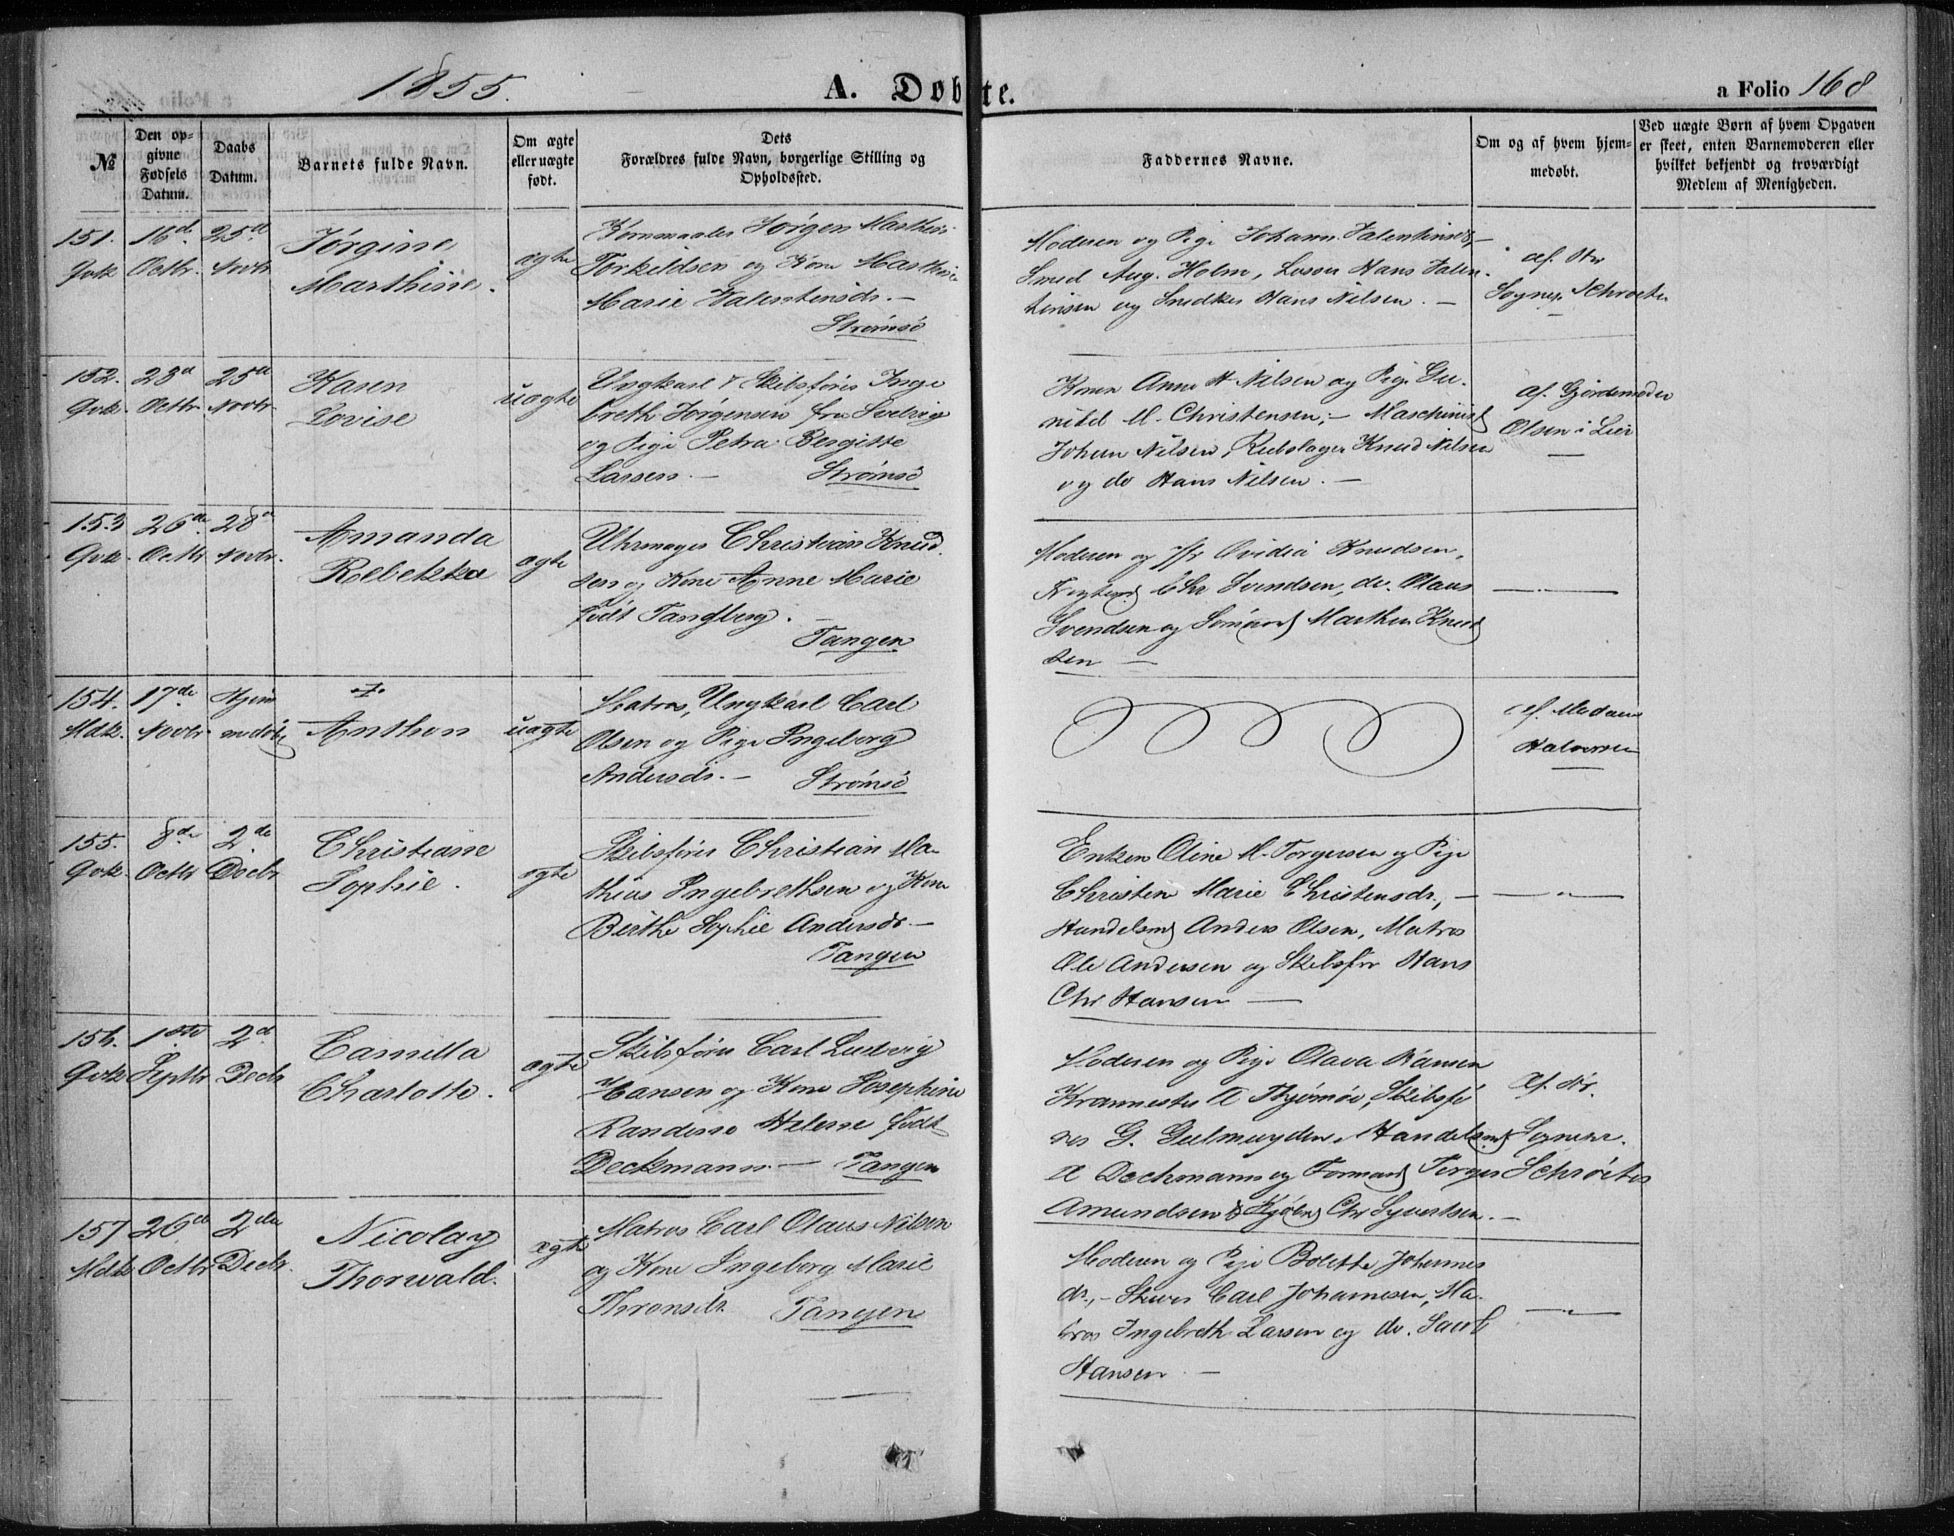 1855.
A. Døbte.
a Folio 168
№
Den opgivne Fødsels Datum.
Daabs Datum.
Barnets fulde Navn.
Om ægte eller uægte født.
Dets Forældres fulde Navn, borgerlige Stilling og Opholdssted.
Faddernes Navne.
Om og af hvem hjemmedøbt.
Ved uægte Børn af hvem Opgaven er skeet, enten Barnemoderen eller hvilket bekjendt og troværdigt Medlem af Menigheden.
151. 16d 25d Jørgine
Qvk. Octbr. Novbr. Marthine.
ægte
Kornmaaler Jørgen Mathias
Torkildsen og Kone Marthine
Marie Valentinsdr. —
Strømsø
Moderen og Pige Johanne Valentinsdr, —
Smed Aug. Holm, Losser Hans Valen-
tinsen og Snedker Hans Nilsen. —
af Hr
Sognep. Schrøeter
152. 28d 25d Karen
Qvk. Octbr. Novbr. Lovise
uægte
Ungkarl & Skibsfører Inge
breth Jørgensen fra Svelvig
og Pige Petra Bergitte
Larsen. — Strømsø
Konen Anne H Nilsen og Pige Gu-
nild M. Christensen; — Maschinist
Johan Nilsen, Rebslager Knud Nilsen
og do Hans Nilsen. —
af Gjordemoder
Olsen i Lier
153 26de 28d Amanda
Qvk. Octbr Novbr. Rebekka
ægte
Uhrmager Christian Knud
sen og Kone Anne Marie
født Tangberg. —
Tangen
Moderen og Jfr Ovidia Knudsen,
Chr Svendsen, do. Olaus
Svendsen og Sømand Marthin Knud
sen —
154. 17de Hjem
Mdk. Novbr medøbt
+
Anthon
uægte
Matros, Ungkarl Carl
Olsen og Pige Ingeborg
Andersdr. — Strømsø
af Madam
Halvorsen
155. 8de 2de Christiane
Qvk. Octbr Decbr Sophie.
ægte
Skibsfører Christian Ma-
thias Ingebrethsen og Kone
Birthe Sophie Andersdr —
Tangen
Enken Oline M. Torgersen og Pige
Christen Marie Christensdr, —
Handelsmd Anders Olsen, Matros
Ole Andersen og Skibsfør Hans
Chr Hansen —
— " —
156. 1ste 2d Camilla
Qvk Septbr Decbr Charlotte.
ægte
Skibsfører Carl Ludvig
Hansen og Kone Josephine
Randine Helene født
Deckmann. — Tangen
Moderen og Pige Olava Hansen
A Thjømøe, Skibsfø
rer G. Gulmuyden, Handelsmd
A Deckmann og Formand Torger
Amundsen & Kjøbmd Chr Syvertsen. —
af Hr.
Sognepr.
Schrøeter
157 26de 2den Nicolay
Mdk Octbr Decbr. Thorwald.
ægte
Matros Carl Olaus Nilsen
og Kone Ingeborg Marie
Thronsdr. Tangen
Moderen og Pige Bolette Johannes
dr., — Skriver Carl Johannesen, Ma-
tros Ingebreth Larsen og do. Jacob
Hansen —
— " —